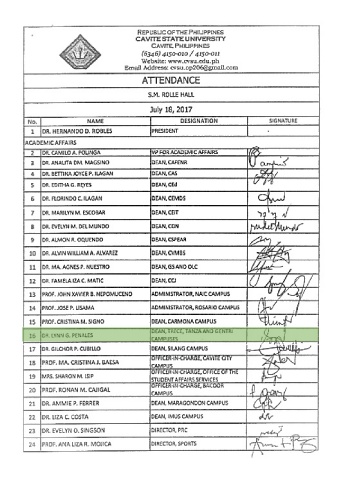 REPUBLIC OF THE PHILIPPINES
CAVITE STATE UNIVERSITY
CAVITE, PHILIPPINES
(6346) 4150-010 / 4150-011
Website: www.cvsu.edu.ph
Email Address: cvsu.op206@gmail.com
ATTENDANCE
S.M. ROLLE HALL
July 18, 2017
No. NAME DESIGNATION SIGNATURE
1 DR. HERNANDO D. ROBLES PRESIDENT
ACADEMIC AFFAIRS
2 DR. CAMILO A. POLINGA VP FOR ACADEMIC AFFAIRS
3 DR. ANALITA DM. MAGSINO DEAN, CAFENR
4 DR. BETTINA JOYCE P. ILAGAN DEAN, CAS
5 DR. EDITHA G. REYES DEAN, CED
6 DR. FLORINDO C. ILAGAN DEAN, CEMDS
7 DR. MARILYN M. ESCOBAR DEAN, CEIT
8 DR. EVELYN M. DEL MUNDO DEAN, CON
9 DR. ALMON R. OQUENDO DEAN, CSPEAR
10 DR. ALVIN WILLIAM A. ALVAREZ DEAN, CVMBS
11 DR. MA. AGNES P. NUESTRO DEAN, GS AND OLC
12 DR. FAMELA IZA C. MATIC DEAN, CCJ
13 PROF. JOHN XAVIER B. NEPOMUCENO ADMINISTRATOR, NAIC CAMPUS
14 PROF. JOSE P. LISAMA ADMINISTRATOR, ROSARIO CAMPUS
15 PROF. CRISTINA M. SIGNO DEAN, CARMONA CAMPUS
16 DR. LYNN G. PENALES DEAN, TRECE, TANZA AND GENTRI
CAMPUSES
17 DR. GILCHOR P. CUBILLO DEAN, SILANG CAMPUS
18 PROF. MA. CRISTINA J. BAESA OFFICER-IN-CHARGE, CAVITE CITY
CAMPUS
19 MRS. SHARON M. ISIP OFFICER-IN-CHARGE, OFFICE OF THE
STUDENT AFFAIRS SERVICES
20 PROF. RONAN M. CAJIGAL OFFICER-IN-CHARGE, BACOOR
CAMPUS
21 DR. AMMIE P. FERRER DEAN, MARAGONDON CAMPUS
22 DR. LIZA C. COSTA DEAN, IMUS CAMPUS
23 DR. EVELYN O. SINGSON DIRECTOR, PRC
24 PROF. ANA LIZA R. MOJICA DIRECTOR, SPORTS